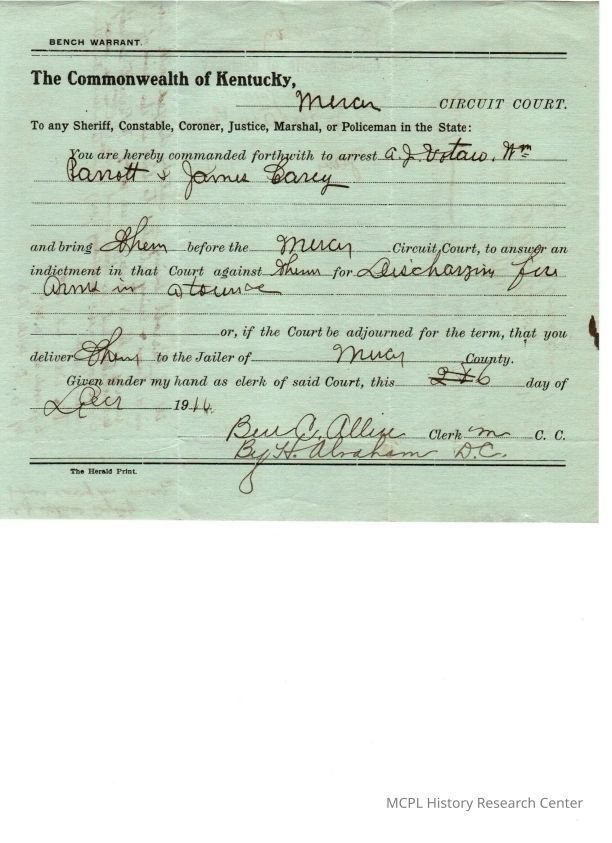 BENCH WARRANT.
The Commonwealth of Kentucky,
Mercer CIRCUIT COURT.
To any Sheriff, Constable, Coroner, Justice, Marshal, or Policeman in the State:
You are hereby commanded forthwith to arrest A. J. Votaw, Wm
Parrott & James Carey
and bring them before the Mercer Circuit Court, to answer an
indictment in that Court against them for Discharging fire
arms in
or, if the Court be adjourned for the term, that you
deliver them to the Jailer of Mercer County.
Given under my hand as clerk of said Court, this 6 day of
Decr 1916.
Ben C. Allin Clerk M C. C.
By H. Abraham D.C.
The Herald Print.
MCPL History Research Center